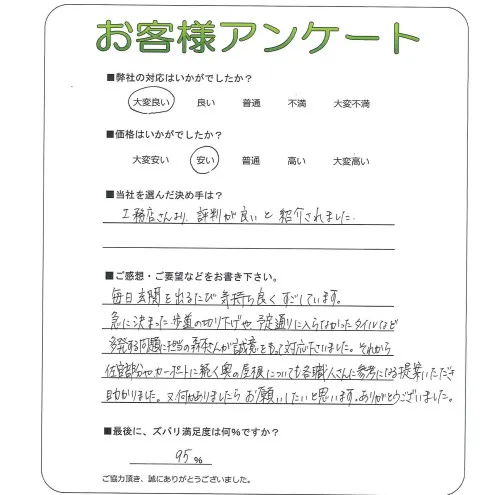 お客様アンケート
■弊社の対応はいかがでしたか？
大変良い 良い 普通 不満 大変不満
■価格はいかがでしたか？
大変安い 安い 普通 高い 大変高い
■当社を選んだ決め手は？
工務店さんより、評判が良いと紹介されました。
■ご感想・ご要望などをお書き下さい。
毎日玄関を出るたび気持ち良くすごしています。
急に決まった歩道の切り下げや予定通りに入らなかったタイルなど
多発する問題に担当の森さんが誠意をもって対応下さいました。それから
佐官部分やカーポートに続く奥の屋根についても各職人さんに参考になる提案いただき
助かりました。又何かありましたらお願いしたいと思います。ありがとうございました。
■最後に、ズバリ満足度は何％ですか？
95 %
ご協力頂き、誠にありがとうございました。